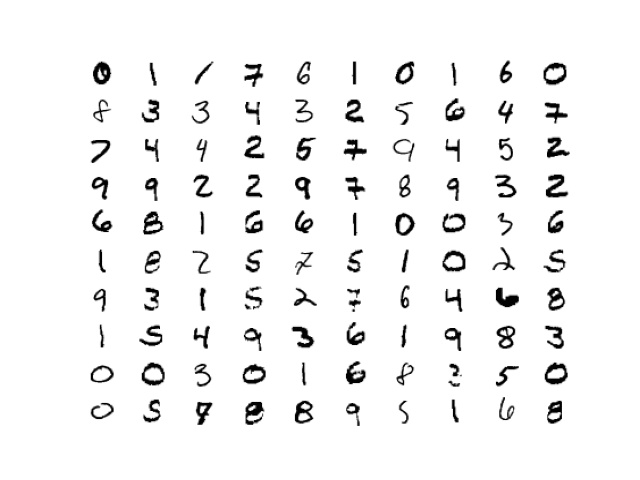 0 1 1 7 6 1 0 1 6 0
8 3 3 4 3 2 5 6 4 7
7 4 4 2 5 7 9 4 5 2
9 9 2 2 9 7 8 9 3 2
6 8 1 6 6 1 0 0 3 6
1 8 2 5 7 5 1 0 2 5
9 3 1 5 2 7 6 4 6 8
1 5 4 9 3 6 1 9 8 3
0 0 3 0 1 6 8 2 5 0
0 5 7 8 8 9 5 1 6 8